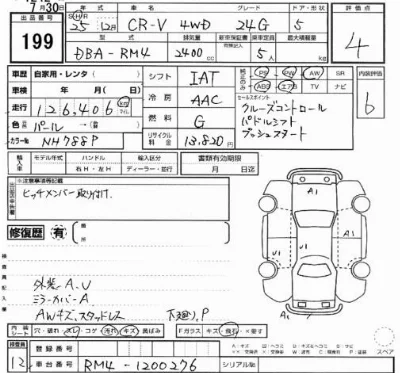 7月30日
出品番号 199
S H R 25 12月 CR-V 4WD 24G 5
評価点 4
型式 排気量 乗車定員 ドア・形状 最大積載量
DBA-RM4 2400 cc 5人
車歴 自家用・レンタ( ) シフト IAT
PS PW AW SR
ABS エアB TV ナビ
内装評価 b
車検 年 月(日) 冷房 AAC
セールスポイント
走行 126,406 km マイル
クルーズコントロール
パドルシフト
プッシュスタート
色 パール → ( ) 燃料 G
カラーNo. NH788P リサイクル料金 13,820円
輸入車 モデル年式 ハンドル 輸入区分 書類有効期限
年 右H・左H ディーラー・並行 月 日迄
※注意事項等
ヒッチメンバー取り付け.
修復歴 有
A1
V1
V1
A1
外装A.U
ミラーカバーA
AWキズ,スタッドレス 下廻り,P
内装 シート 穴・破れ スレ コゲ 汚れ キズ 黒ばみ Fガラス キズ 飛石 X要す
登録番号
12 車台番号 RM4-1200276 シリアルNo.
スペア